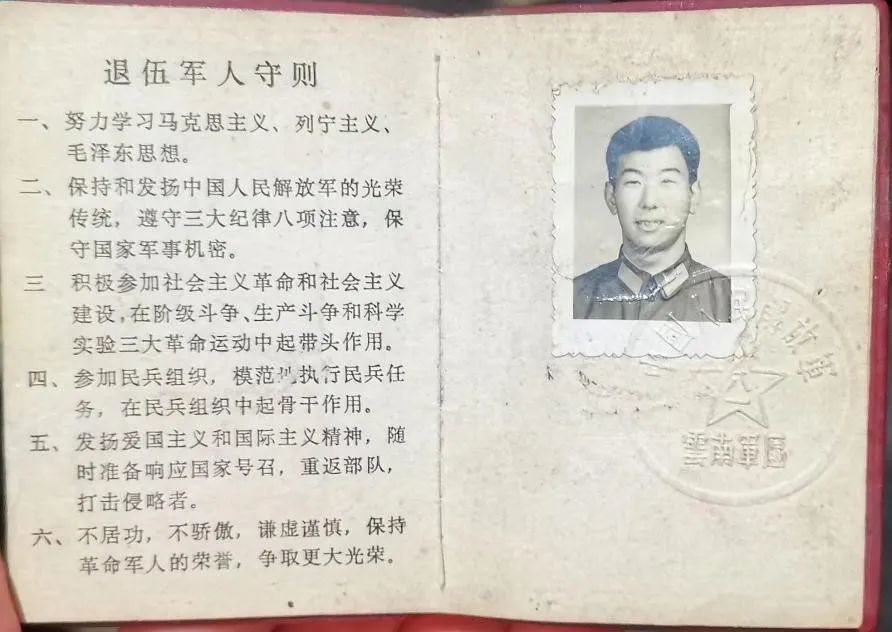 退伍军人守则
一、努力学习马克思主义、列宁主义、
毛泽东思想。
二、保持和发扬中国人民解放军的光荣
传统，遵守三大纪律八项注意，保
守国家军事机密。
三 积极参加社会主义革命和社会主义
建设,在阶级斗争、生产斗争和科学
实验三大革命运动中起带头作用。
四、参加民兵组织，模范地执行民兵任
务，在民兵组织中起骨干作用。
五、发扬爱国主义和国际主义精神，随
时准备响应国家号召，重返部队，
打击侵略者。
六、不居功，不骄傲，谦虚谨慎，保持
革命军人的荣誉，争取更大光荣。
国人民解放軍
八一
雲南軍區